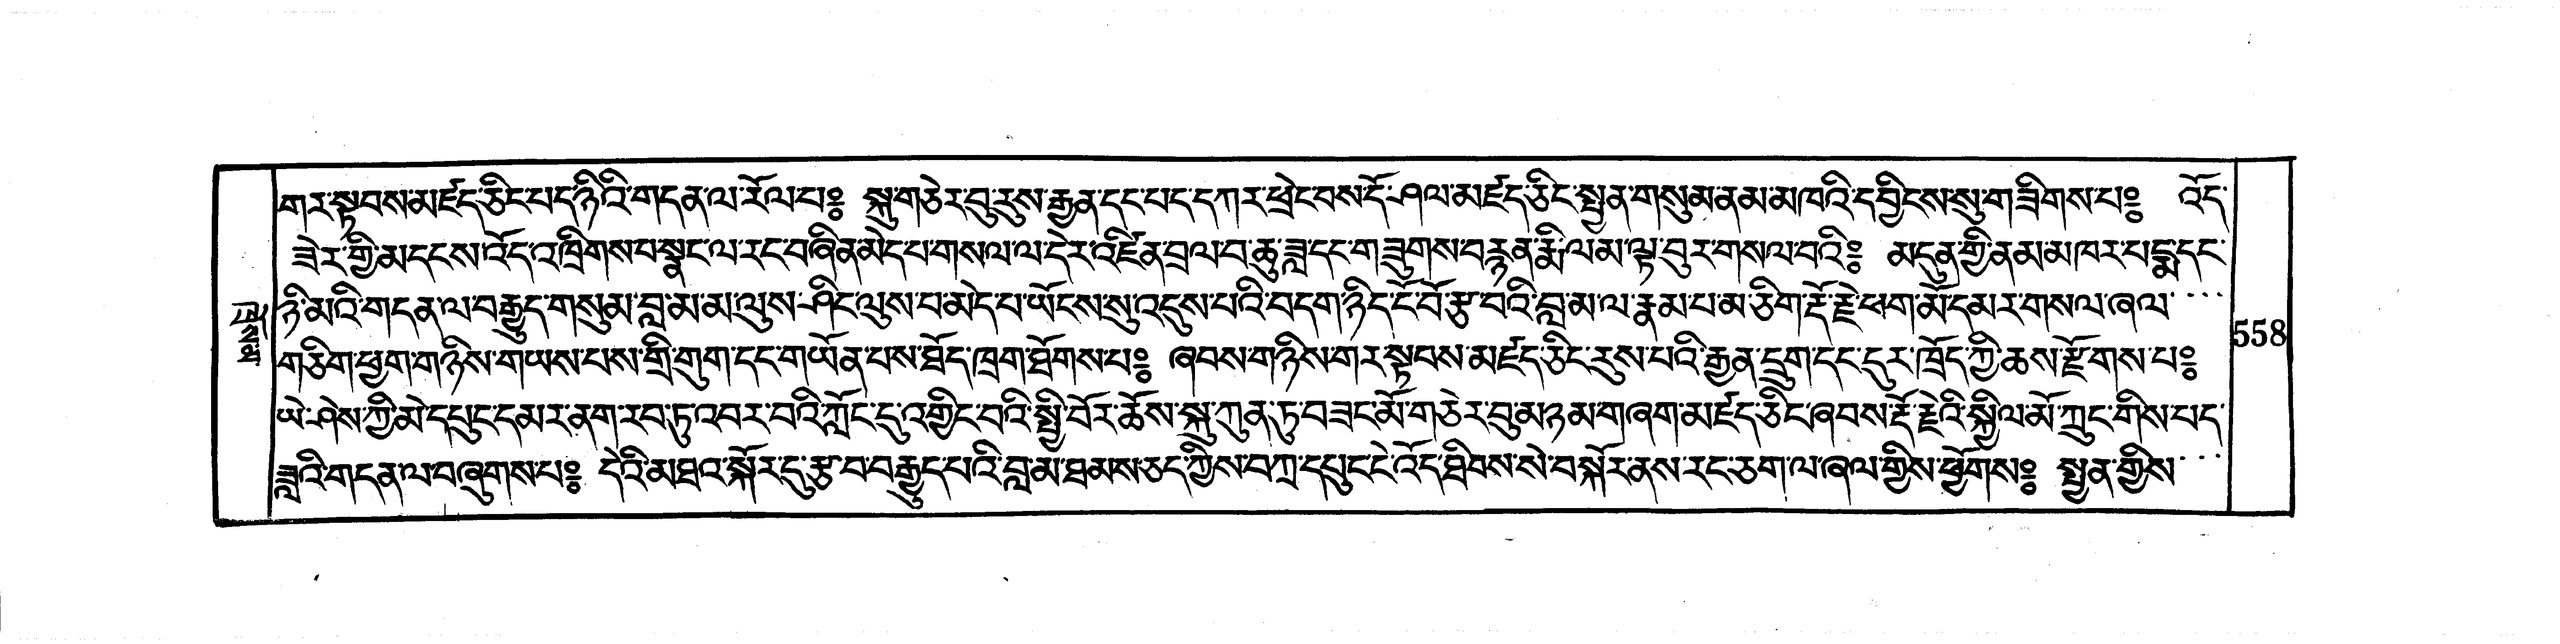 གར་སྟབས་མཛད་ཅིང་པད་ཉིའི་གདན་ལ་རོལ་པ༔ སྐུ་གཅེར་བུ་རུས་རྒྱན་དང་པད་དཀར་ཕྲེང་བས་དོ་ཤལ་མཛད་ཅིང་སྤྱན་གསུམ་ནམ་མཁའི་དབྱིངས་སུ་གཟིགས་པ༔ འོད་
ཟེར་གྱི་མདངས་འོད་འཁྲིགས་པ་སྣང་ལ་རང་བཞིན་མེད་པ་གསལ་ལ་དེར་འཛིན་བྲལ་བ་ཆུ་ཟླ་དང་གཟུགས་བརྙན་རྨི་ལམ་ལྟ་བུར་གསལ་བའི༔ མདུན་གྱི་ནམ་མཁར་པདྨ་དང་
ཉི་མའི་གདན་ལ་བརྒྱུད་གསུམ་བླ་མ་མ་ལུས་ཤིང་ལུས་པ་མེད་པ་ཡོངས་སུ་འདུས་པའི་བདག་ཉིད་ངོ་བོ་རྩ་བའི་བླ་མ་ལ་རྣམ་པ་མ་ཅིག་རྡོ་རྗེ་ཕག་མོ་དམར་གསལ་ཞལ་
གཅིག་ཕྱག་གཉིས་གཡས་པས་གྲི་གུག་དང་གཡོན་པས་ཐོད་ཁྲག་ཐོགས་པ༔ ཞབས་གཉིས་གར་སྟབས་མཛད་ཅིང་རུས་པའི་རྒྱན་དྲུག་དང་དུར་ཁྲོད་ཀྱི་ཆས་རྫོགས་པ༔
ཡེ་ཤེས་ཀྱི་མེ་དཔུང་དམར་ནག་རབ་ཏུ་འབར་བའི་ཀློང་དུ་འགྱིང་བའི་སྤྱི་བོར་ཆོས་སྐུ་ཀུན་ཏུ་བཟང་མོ་གཅེར་བུ་མཉམ་གཞག་མཛད་ཅིང་ཞབས་རྡོ་རྗེའི་སྐྱིལ་མོ་ཀྲུང་གིས་པད་
ཟླའི་གདན་ལ་བཞུགས་པ༔ དེའི་མཐའ་སྐོར་དུ་རྩ་བ་བརྒྱུད་པའི་བླ་མ་ཐམས་ཅད་ཀྱིས་བཀྲ་དཔུང་ངེ་འོད་ཐིབས་སེ་བསྐོར་ནས་རང་ཅག་ལ་ཞལ་གྱིས་ཕྱོགས༔ སྤྱན་གྱིས་
558